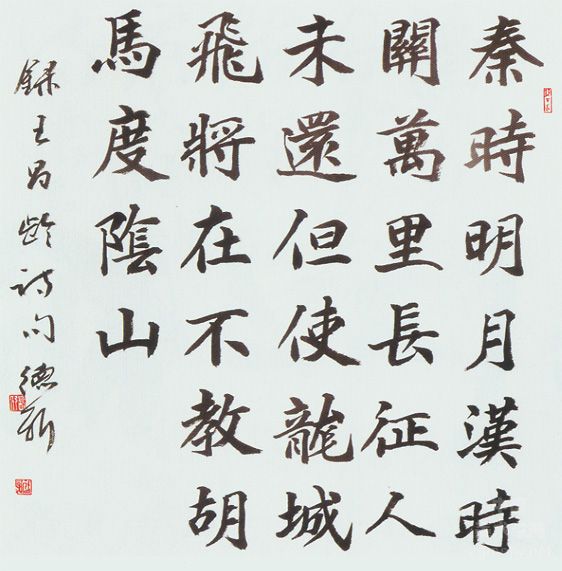 秦時明月漢時
關萬里長征人
未還但使龍城
飛將在不教胡
馬度陰山
録王昌齡詩句